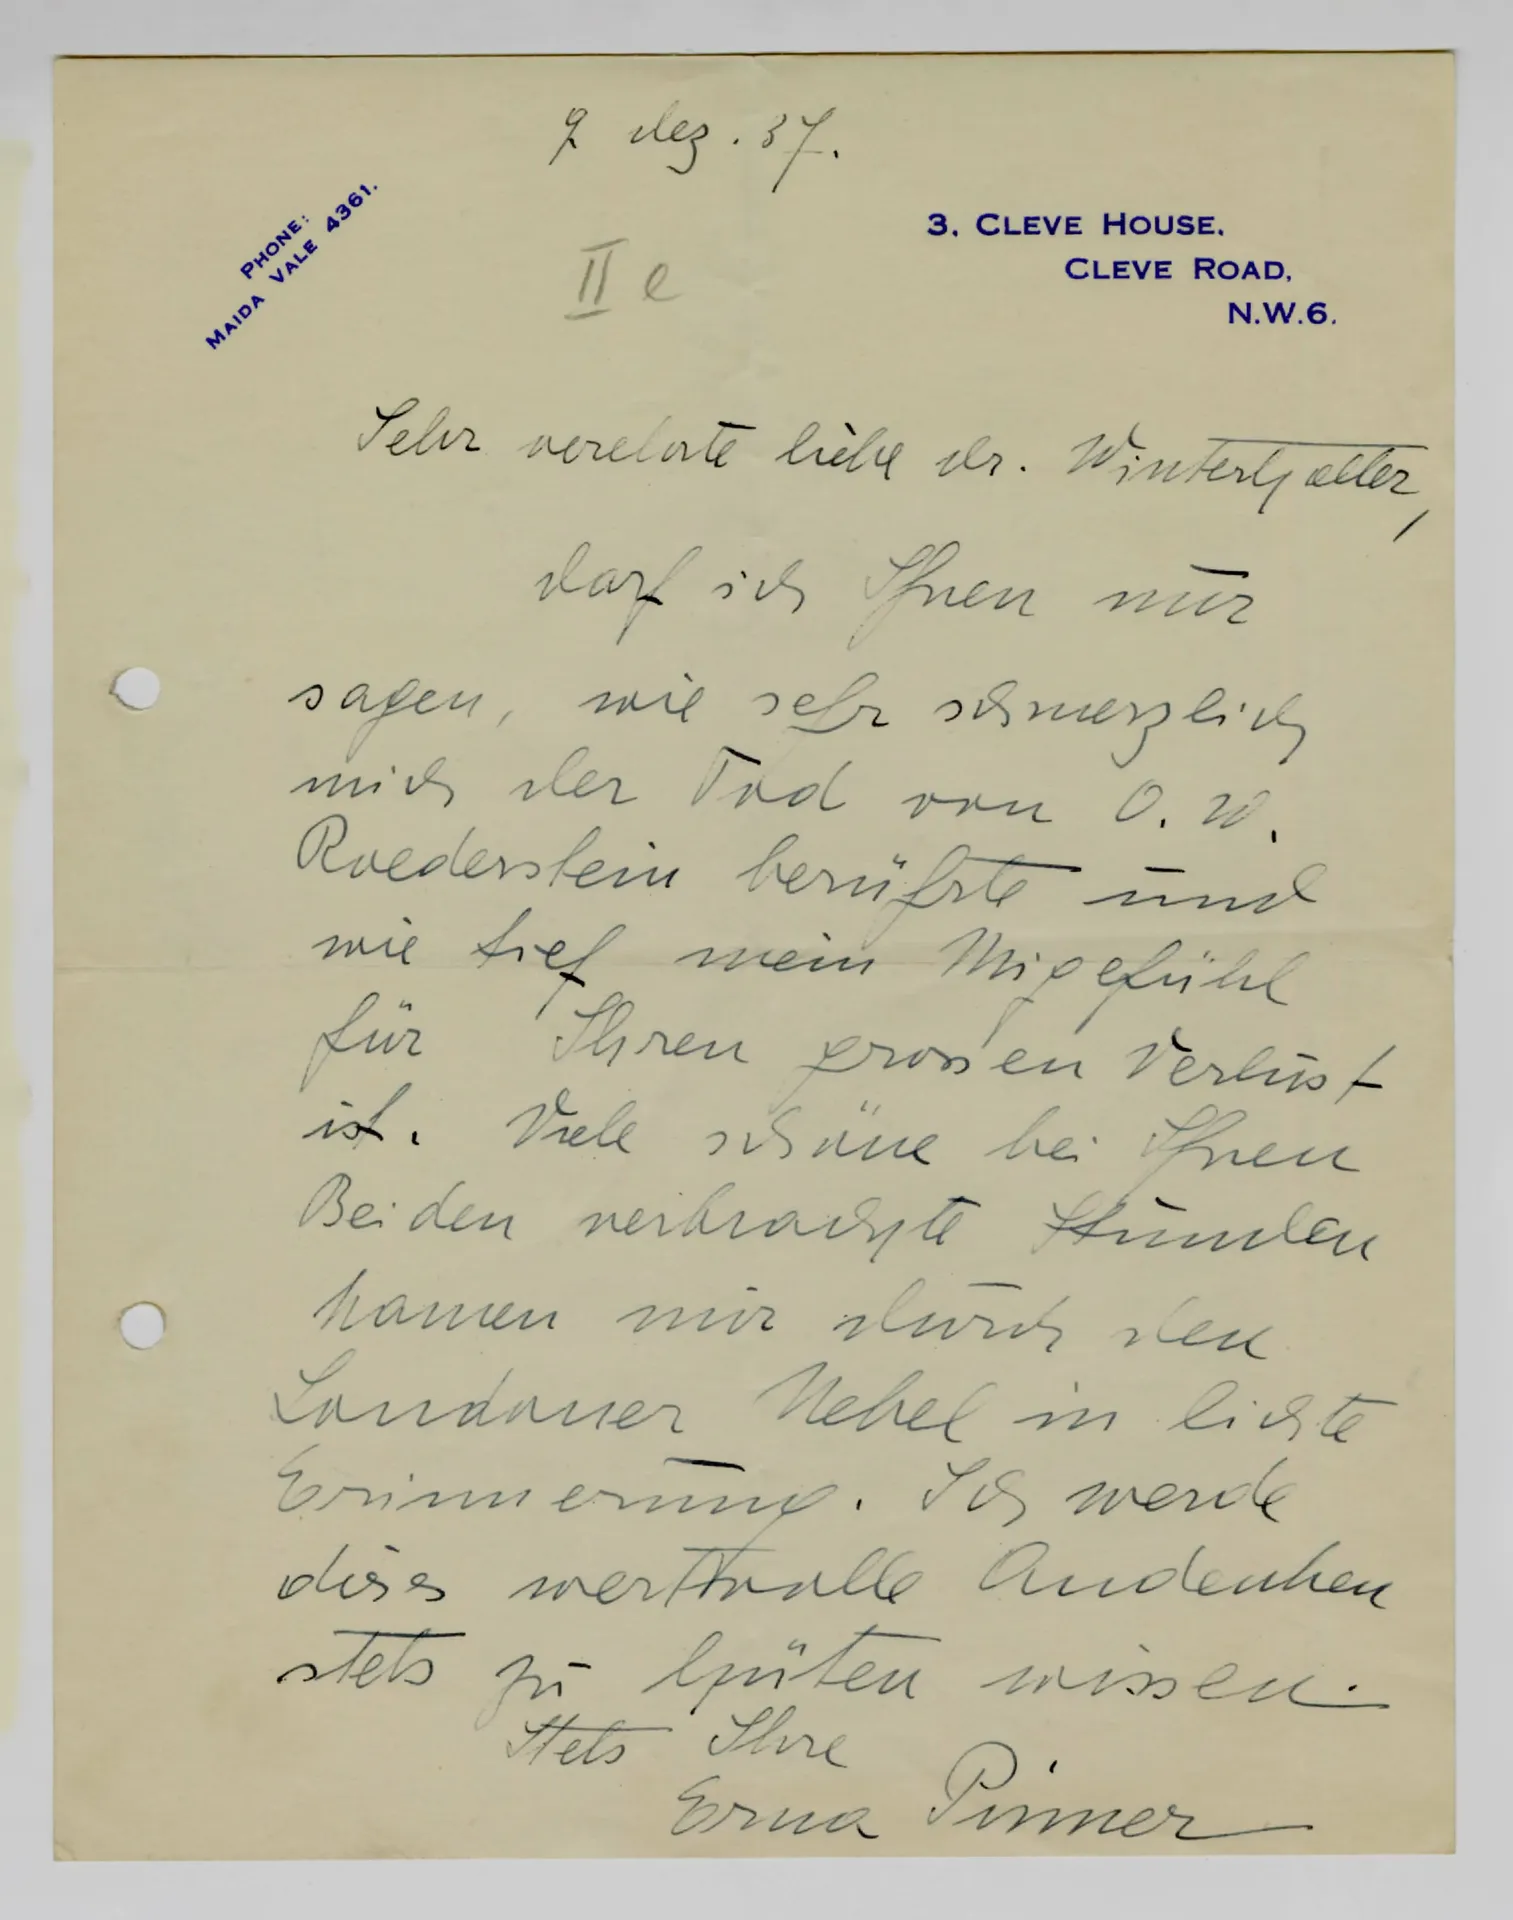 9 dez. 37.
PHONE:
MAIDA VALE 4361.
3, CLEVE HOUSE,
CLEVE ROAD,
N.W.6.
II e
Sehr verehrte liebe Dr. Winterhalter,
darf ich Ihnen nur
sagen, wie sehr schmerzlich
mich der Tod von O. W.
Roederstein berührte und
wie tief mein Migefühl
für Ihren grossen Verlust
ist. Viele schöne bei Ihnen
Beiden verbrachte Stunden
kamen mir durch den
Londoner Nebel in lichte
Erinnerung. Ich werde
dieses wertvolle Andenken
stets zu hüten wissen.
Stets Ihre
Erna Pinner